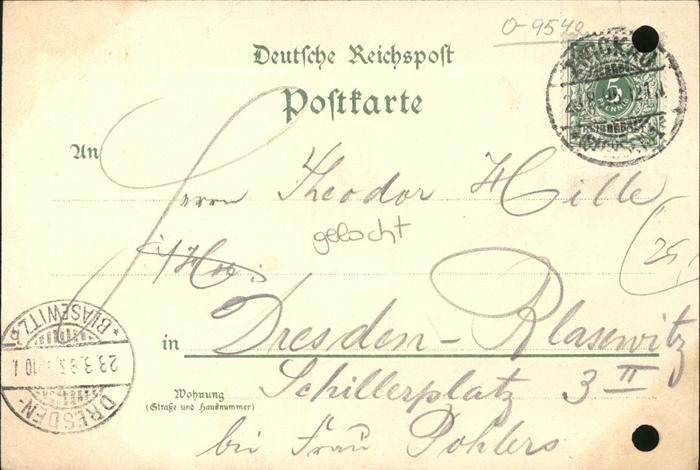 0-9542
Deutsche Reichspost
Postkarte
ZWICKAU
5
PFENNIG
An
Herrn Theodor Hille
gelocht
(25)
in Dresden-Blasewitz
Wohnung
(Straße und Hausnummer)
Schillerplatz 3 II
bei Frau Pohlers
DRESDEN-
*BLASEWITZ